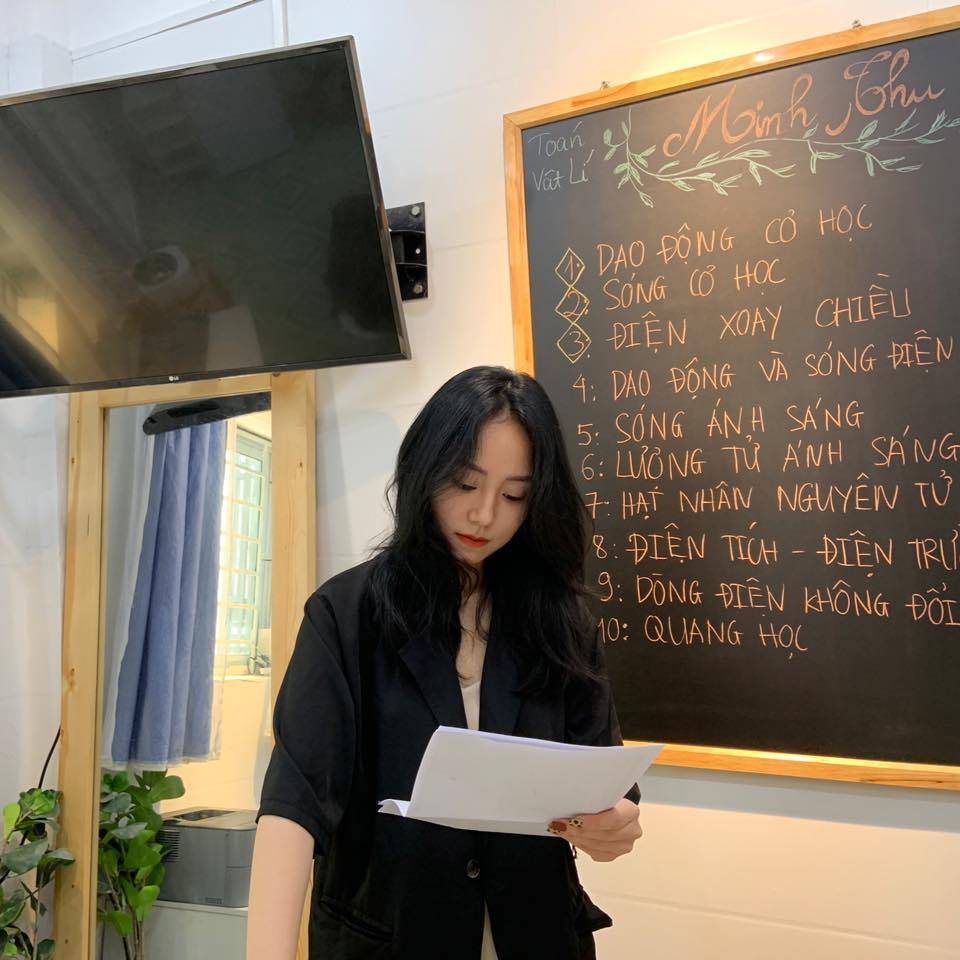 Minh Thu
Toán
Vật Lí
1. DAO ĐỘNG CƠ HỌC
2. SÓNG CƠ HỌC
3. ĐIỆN XOAY CHIỀU
4: DAO ĐỘNG VÀ SÓNG ĐIỆN
5: SÓNG ÁNH SÁNG
6: LƯỢNG TỬ ÁNH SÁNG
7- HẠT NHÂN NGUYÊN TỬ
8: ĐIỆN TÍCH - ĐIỆN
9: DÒNG ĐIỆN KHÔNG ĐỔI
10: QUANG HỌC
LG